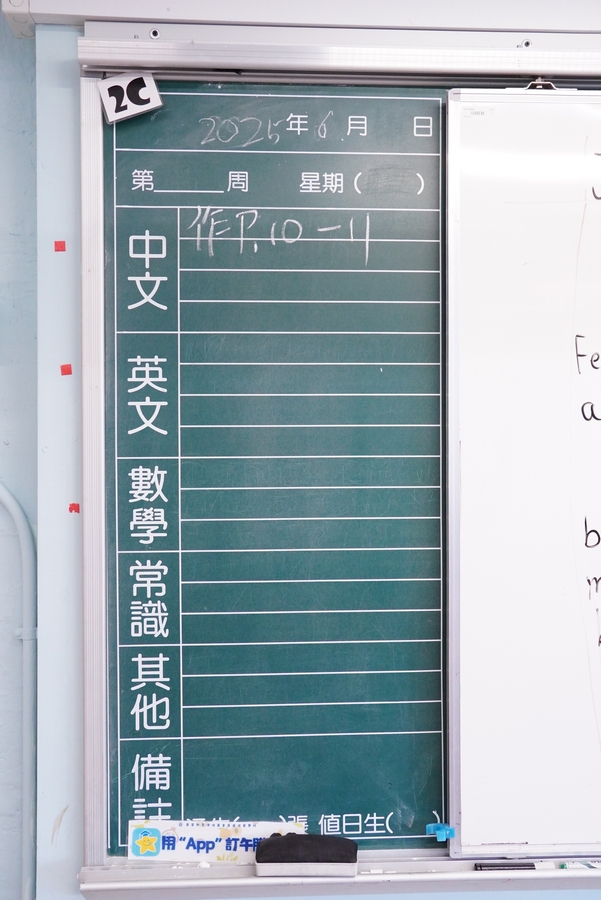 2C
2025年6月 日
第______周 星期( )
中文
作P.10-11
英文
數學
常識
其他
備註
值日生( )
用“App”訂午
Fe
a
b